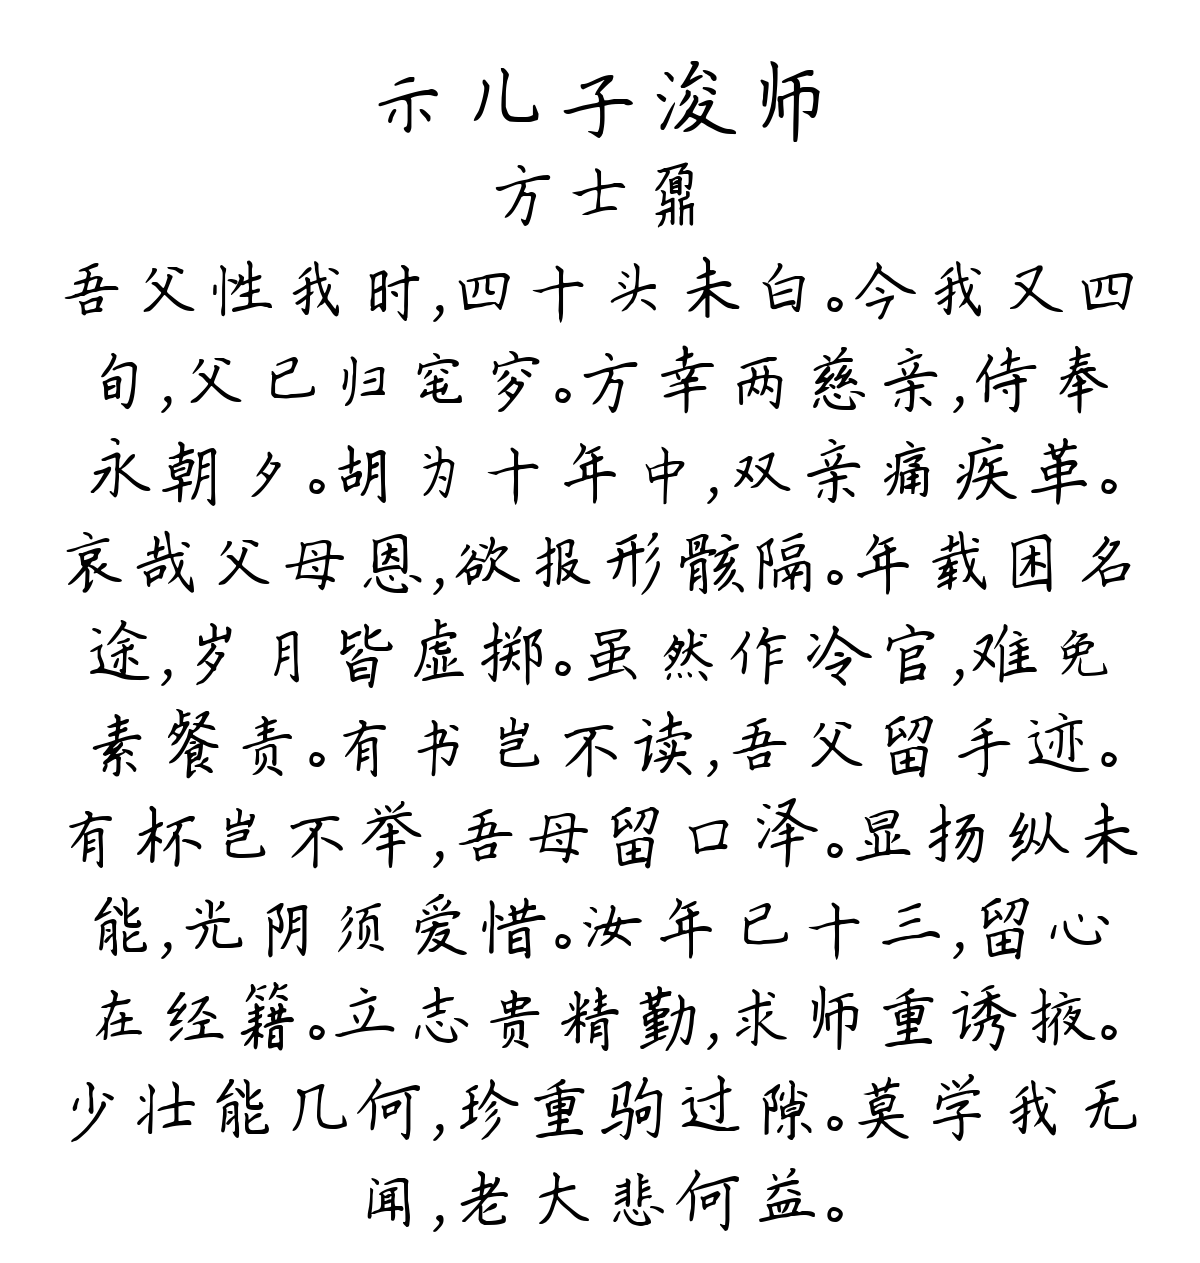 示儿子浚师
方士鼐
吾父性我时,四十头未白。今我又四
旬,父已归窀穸。方幸两慈亲,侍奉
永朝夕。胡为十年中,双亲痛疾革。
哀哉父母恩,欲报形骸隔。年载困名
途,岁月皆虚掷。虽然作冷官,难免
素餐责。有书岂不读,吾父留手迹。
有杯岂不举,吾母留口泽。显扬纵未
能,光阴须爱惜。汝年已十三,留心
在经籍。立志贵精勤,求师重诱掖。
少壮能几何,珍重驹过隙。莫学我无
闻,老大悲何益。